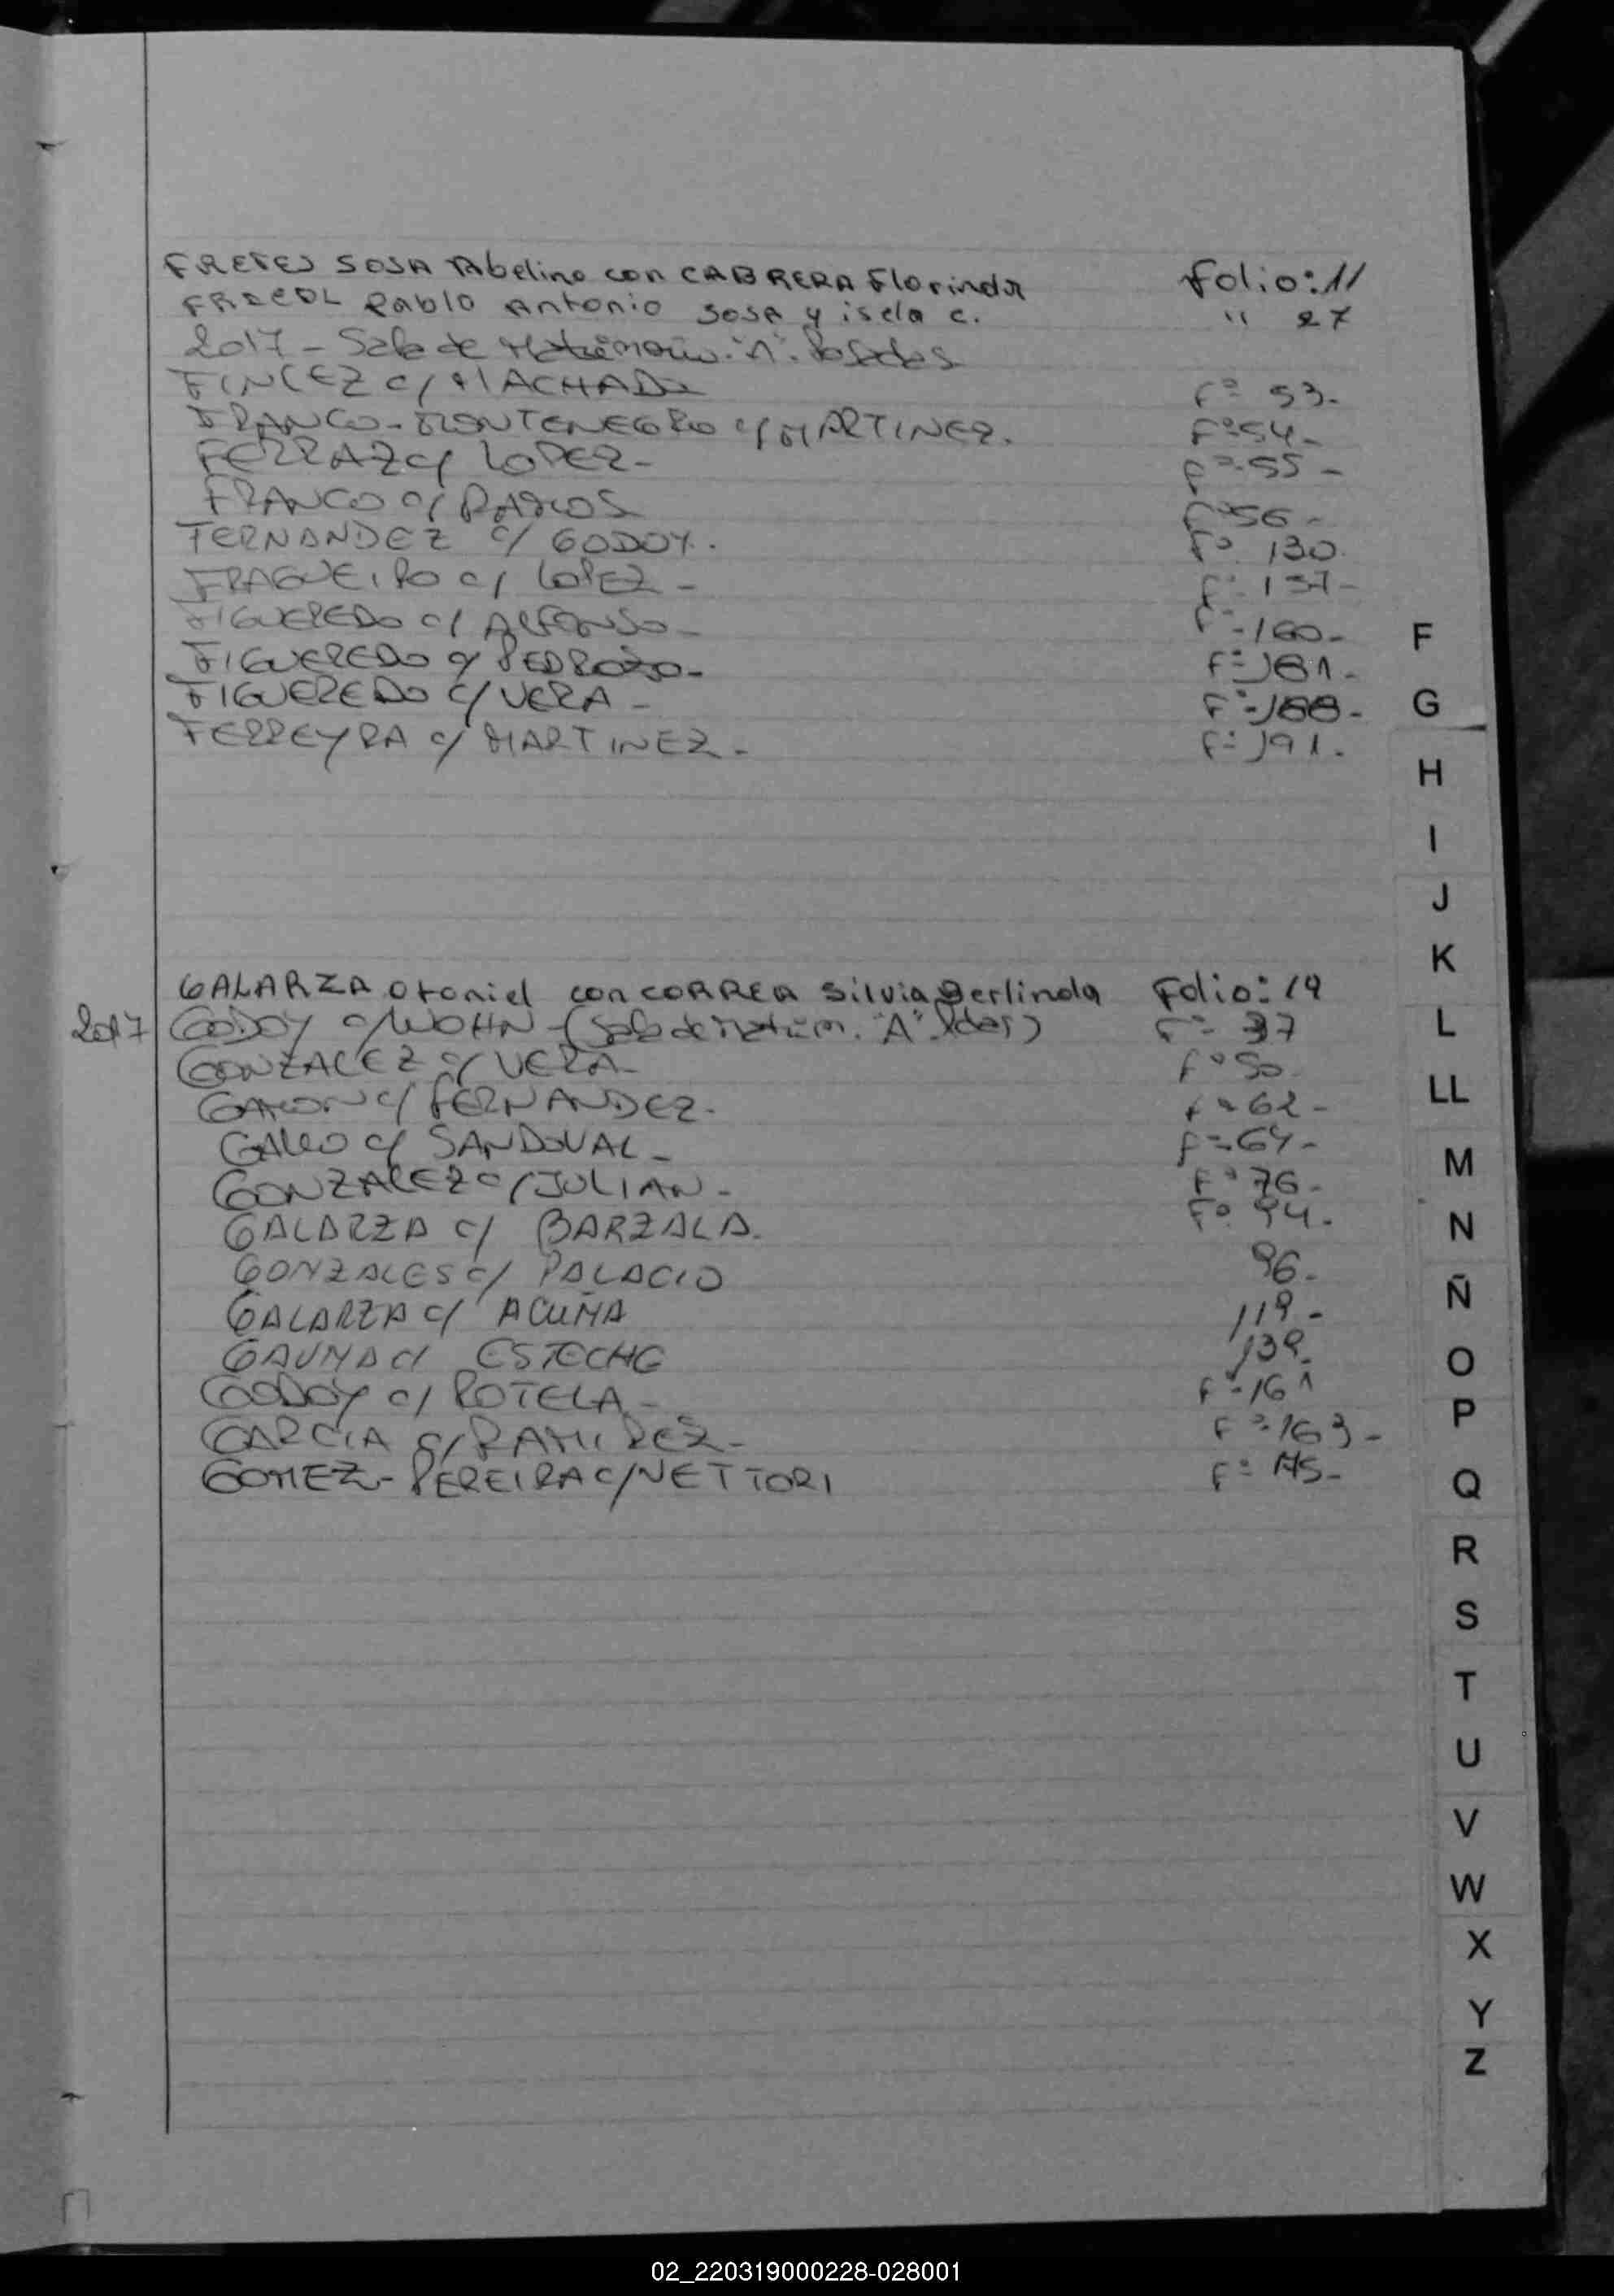 FRETES SOSA Abelino con CABRERA Florinda Folio: 11
Pablo Antonio SOSA y isela c. " 27
2017 - Sala de Matrimonio "A". Posadas
C/ MACHADO Fº 53.
FRANCO-MONTENEGRO C/ MARTINEZ. Fº 54-
FERRAZ C/ LOPEZ- Fº 55-
FRANCO C/ RAMOS Fº 56-
FERNANDEZ C/ GODOY. Fº 130.
FRAGUEIRO C/ LOPEZ- Fº 137-
FIGUEREDO C/ ALFONSO- Fº 160-
FIGUEREDO C/ PEDROZO- Fº 181-
FIGUEREDO C/ VERA- Fº 188-
FERREYRA C/ MARTINEZ- Fº 191.
F
G
H
I
J
K
GALARZA Otoniel con CORREA Silvia Folio: 19
2017 GODOY C/ WOHN - (Sala de Matrim. "A" Pdas) Fº 37
L
GONZALEZ C/ VERA- Fº 50
C/ FERNANDEZ. Fº 62-
LL
GALLO C/ SANDOVAL- Fº 64-
GONZALEZ C/ JULIAN- Fº 76-
M
GALARZA C/ BARZALA. Fº 94.
N
GONZALES C/ PALACIO 96-
GALARZA C/ ACUÑA 119-
Ñ
GAUNA C/ ESTECHE 139.
O
GODOY C/ ROTELA- Fº 161
GARCIA C/ RAMIREZ- Fº 163-
P
GOMEZ-PEREIRA C/ NETTORI Fº 175-
Q
R
S
T
U
V
W
X
Y
Z
02_220319000228-028001